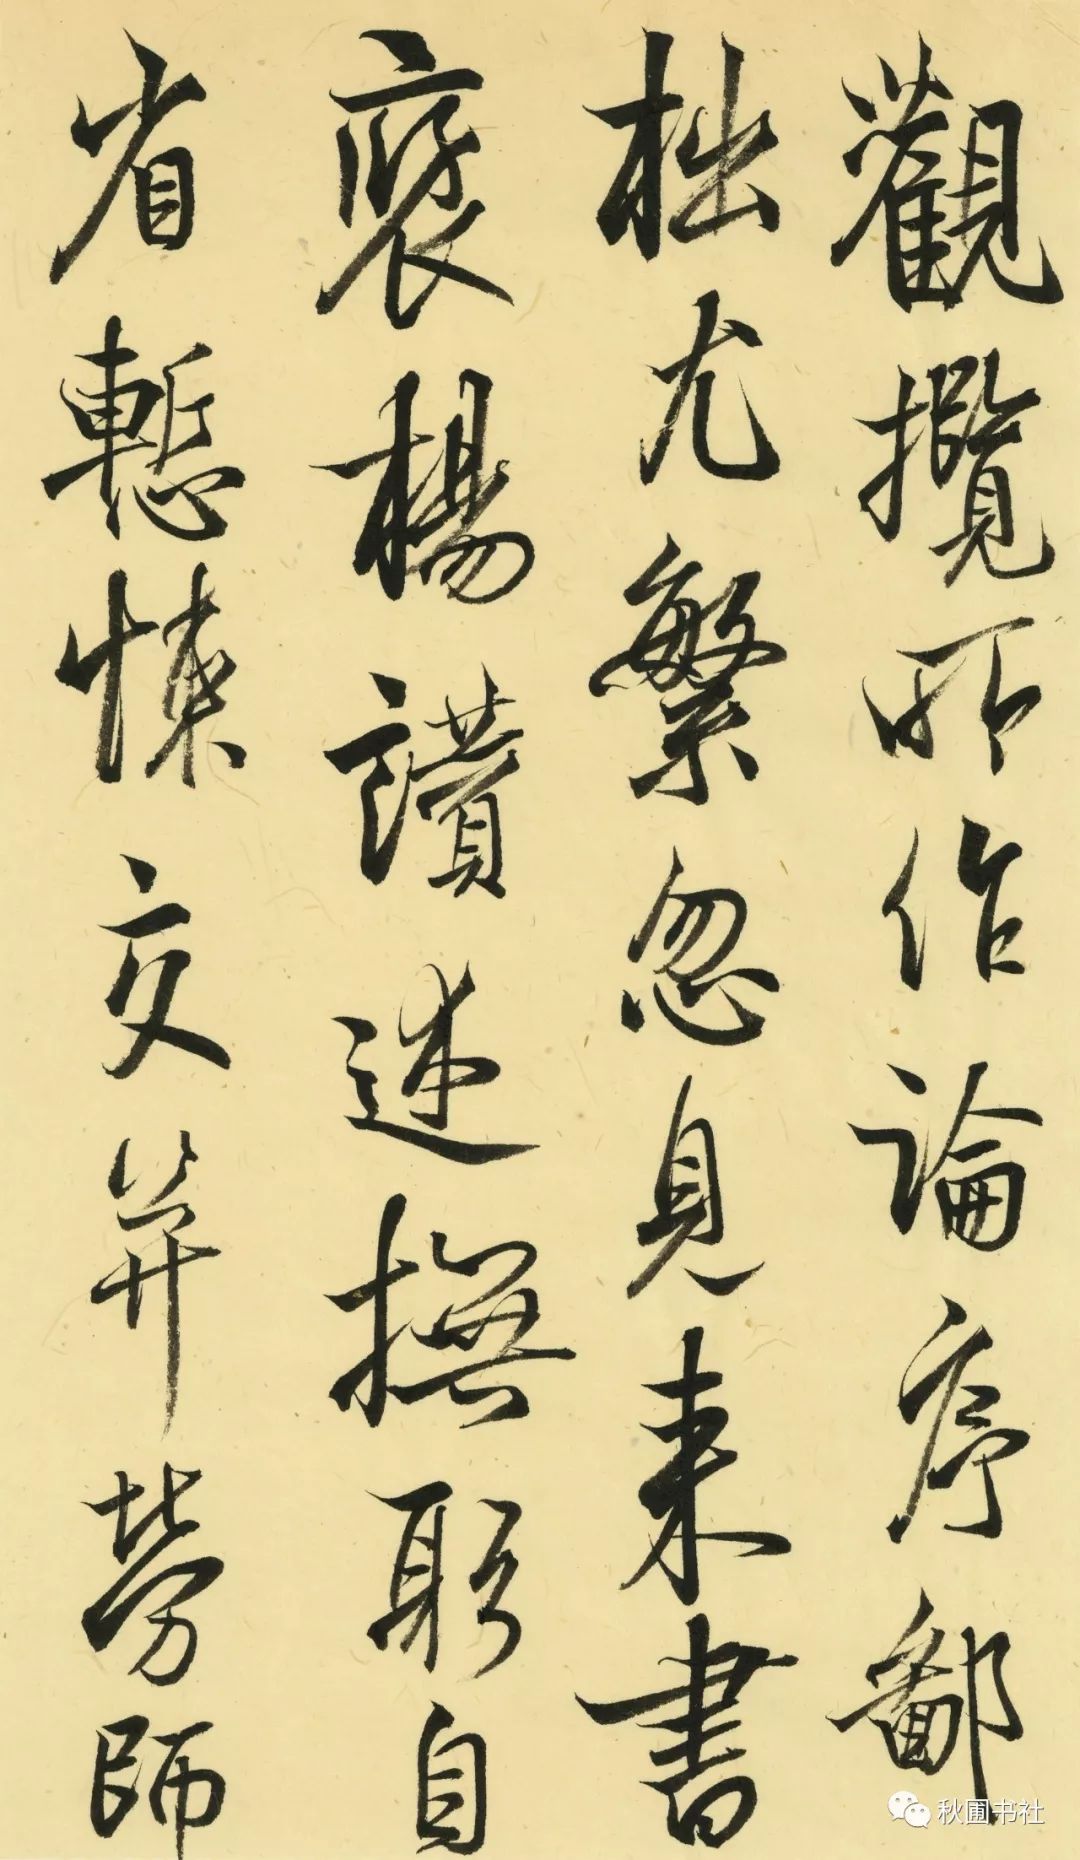 觀攬所作論序鄙
拙尤繁忽見來書
褒揚讚述撫躬自
省慙悚交并勞師
秋圃书社